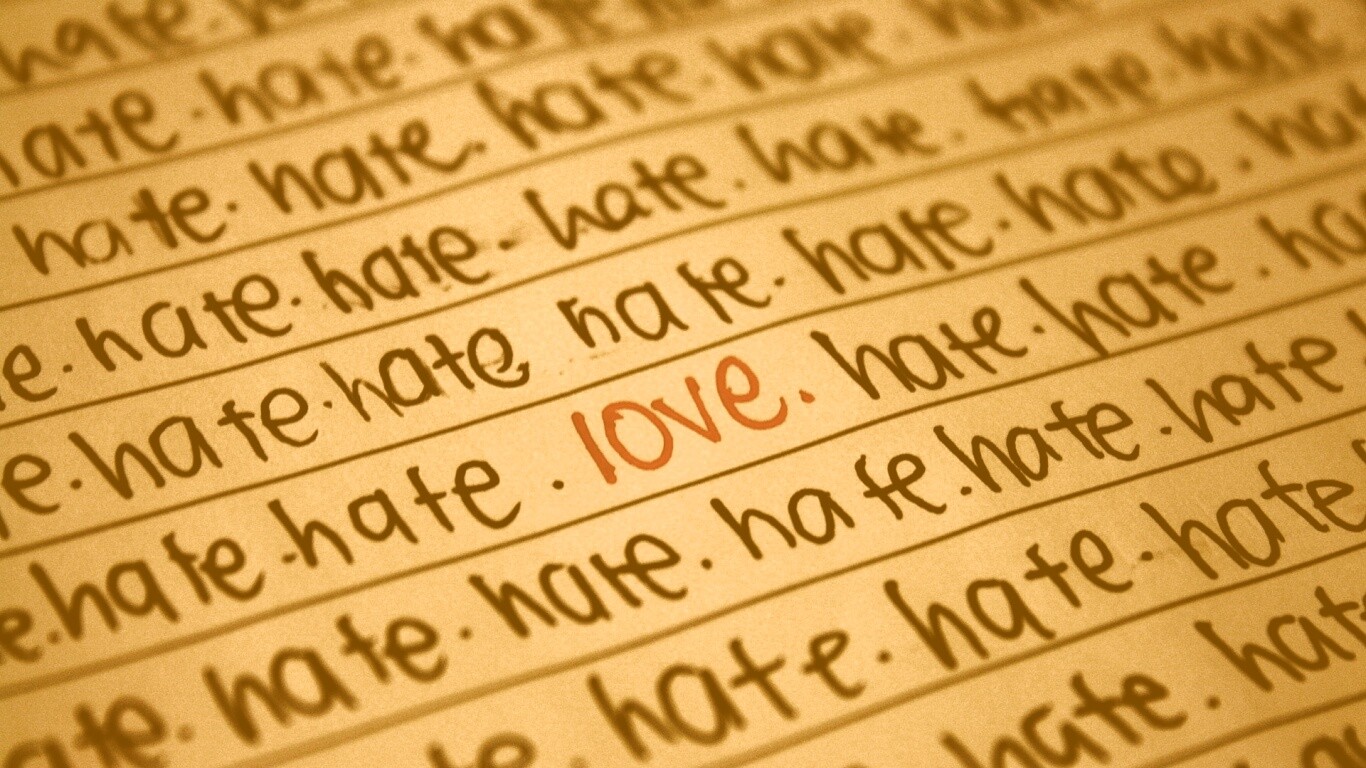 hate.
ate. hate. ha
hate. hate. hate. hate. hate
e. hate. hate. hate. hate. hate. hate
e. hate. hate hate. hate. hate. hat
e. hate. hate. love. hate. hate. ha
ate. hate. hate. hate. hate. hate
te. hate. hate. hate
hate. hat